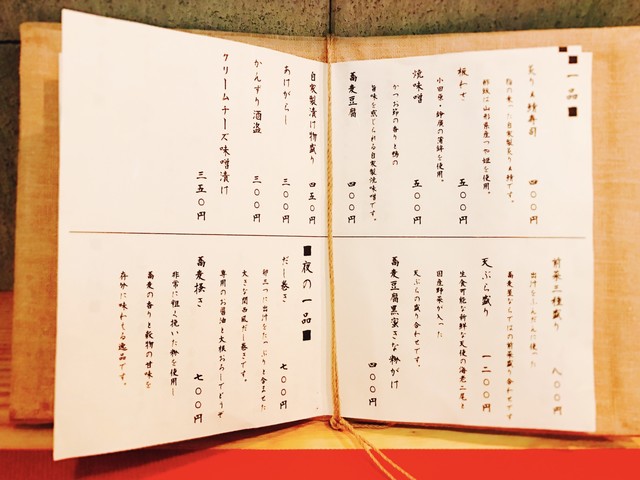 ■一品■
炙り〆鯖寿司 四〇〇円
脂の乗った自家製炙り〆鯖です。
酢飯は山形県産つや姫を使用。
板わさ 五〇〇円
小田原・鈴廣の蒲鉾を使用。
焼味噌 五〇〇円
かつお節の香りと鴨の
旨味を感じられる自家製焼味噌です。
蕎麦豆腐 四〇〇円
前菜三種盛り 八〇〇円
出汁をふんだんに使った
蕎麦屋ならではの前菜盛り合わせです
天ぷら盛り 一二〇〇円
生食可能な新鮮な天使の海老二尾と
国産野菜が入った
天ぷらの盛り合わせです。
蕎麦豆腐黒蜜きな粉がけ 四〇〇円
自家製漬け物盛り 四五〇円
あけがらし 三〇〇円
かんずり酒盗 三〇〇円
クリームチーズ味噌漬け 三五〇円
■夜の一品■
だし巻き 七〇〇円
卵三つに出汁をたっぷりと含ませた
大きな関西風だし巻きです。
専用のお醤油と大根おろしでどうぞ
蕎麦掻き 七〇〇円
非常に粗く挽いた粉を使用し
蕎麦の香りと穀物の甘味を
存分に味わえる逸品です。